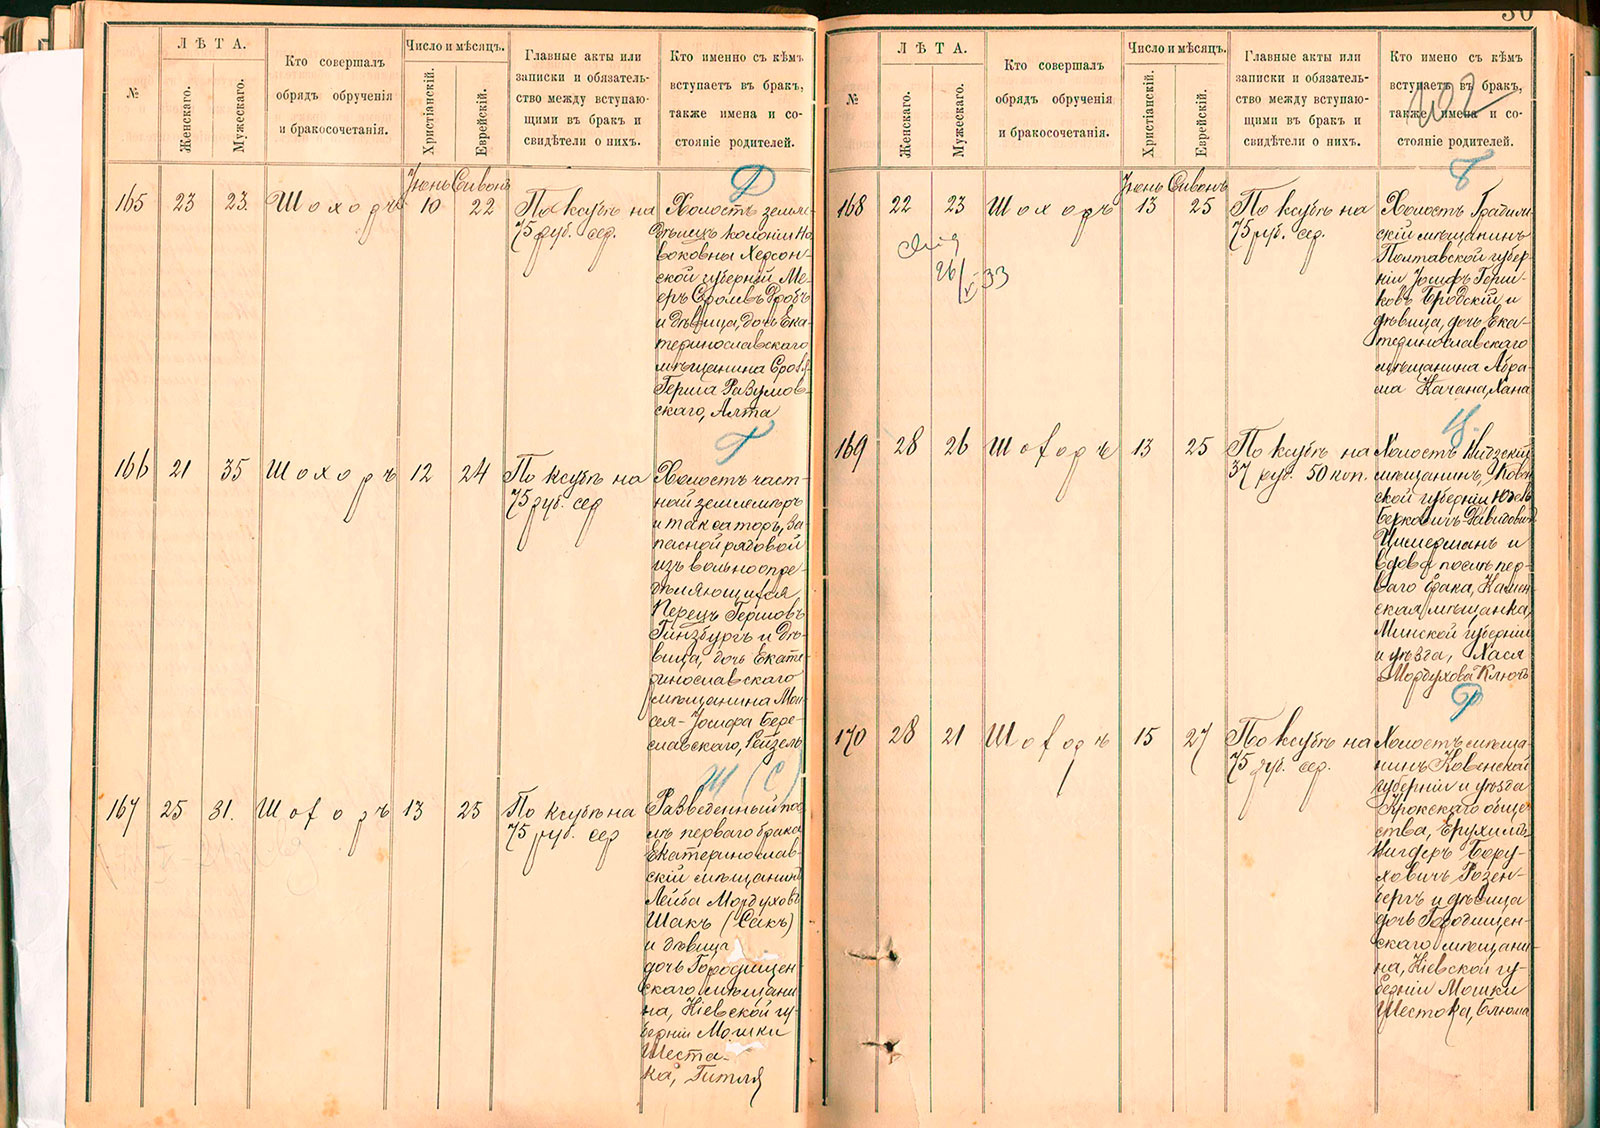 №
ЛѢТА.
Женскаго.
Мужескаго.
Кто совершалъ
обрядъ обрученія
и бракосочетанія.
Число и мѣсяцъ.
Христіанскій.
Еврейскій.
Главные акты или
записки и обязатель-
ство между вступаю-
щими въ бракъ и
свидѣтели о нихъ.
Кто именно съ кѣмъ
вступаетъ въ бракъ,
также имена и со-
стояніе родителей.
Д
165 23 23. Шохоръ
Іюнь Сивонъ
10 22
По ксубѣ на
75 руб. сер.
Холостъ земле-
дѣлецъ колоніи Но
воковны Херсон-
ской губерній Ме-
еръ Сролевъ Дробъ
и дѣвица, дочь Ека-
теринославскаго
мѣщанина Срол
Герша Разумов-
скаго, Алта
Г
166 21 35 Шохоръ 12 24
По ксубѣ на
75 руб. сер
Холостъ част-
ной землемѣръ
и таксаторъ, за-
пасной рядовой
изъ вольноопре-
дѣляющихся
Перецъ Гершовъ
Гинзбургъ и дѣ-
вица, дочь Екате-
ринославскаго
мѣщанина Мои
сея-Іосифа Бере-
славскаго, Рейзель
Ш (С)
167 25 31. Шохоръ 13 25
По ксубѣ на
75 руб. сер
Разведенный пос
лѣ перваго брака
Екатеринослав-
скій мѣщанинъ
Лейба Мордуховъ
Шакъ (Сакъ)
и дѣвица
дочь Городищен-
скаго мѣщани
на, Кіевской гу-
берніи Мошки
Шеста-
ка, Гитля
30
№
ЛѢТА.
Женскаго.
Мужескаго.
Кто совершалъ
обрядъ обрученія
и бракосочетанія.
Число и мѣсяцъ.
Христіанскій.
Еврейскій.
Главные акты или
записки и обязатель-
ство между вступаю-
щими въ бракъ и
свидѣтели о нихъ.
Кто именно съ кѣмъ
вступаетъ въ бракъ,
также имена и со-
стояніе родителей.
Б
168 22 23 Шохоръ
Іюнь Сивонъ
13 25
26/V 33
По ксубѣ на
75 руб. сер.
Холостъ Градиж-
скій мѣщанинъ
Полтавской губер-
ніи Іосифъ Герш-
ковъ Бродскій и
дѣвица, дочь Ека-
теринославскаго
мѣщанина Абра-
ма Качана, Хана
Ц.
169 28 26 Шохоръ 13 25
По ксубѣ на
37 руб. 50 коп.
Холостъ
мѣщанинъ, Ковен
ской губерніи Юдель
Берковичъ-Давидовичъ
Цимерманъ и
вдова послѣ пер-
ваго брака,
ская мѣщанка,
Минской губерніи
и уѣзда, Хася
Мордухова Ключъ
Р
170 28 21 Шохоръ 15 27
По ксубѣ на
75 руб. сер.
Холостъ мѣща-
нинъ Ковенской
губерніи и уѣзда
Крокскаго обще
ства, Ерухимъ
Бору-
ховичъ Розен-
бергъ и дѣвица
дочь Городищен-
скаго мѣщани-
на, Кіевской гу-
берніи Мошки
Шестока, Блюма